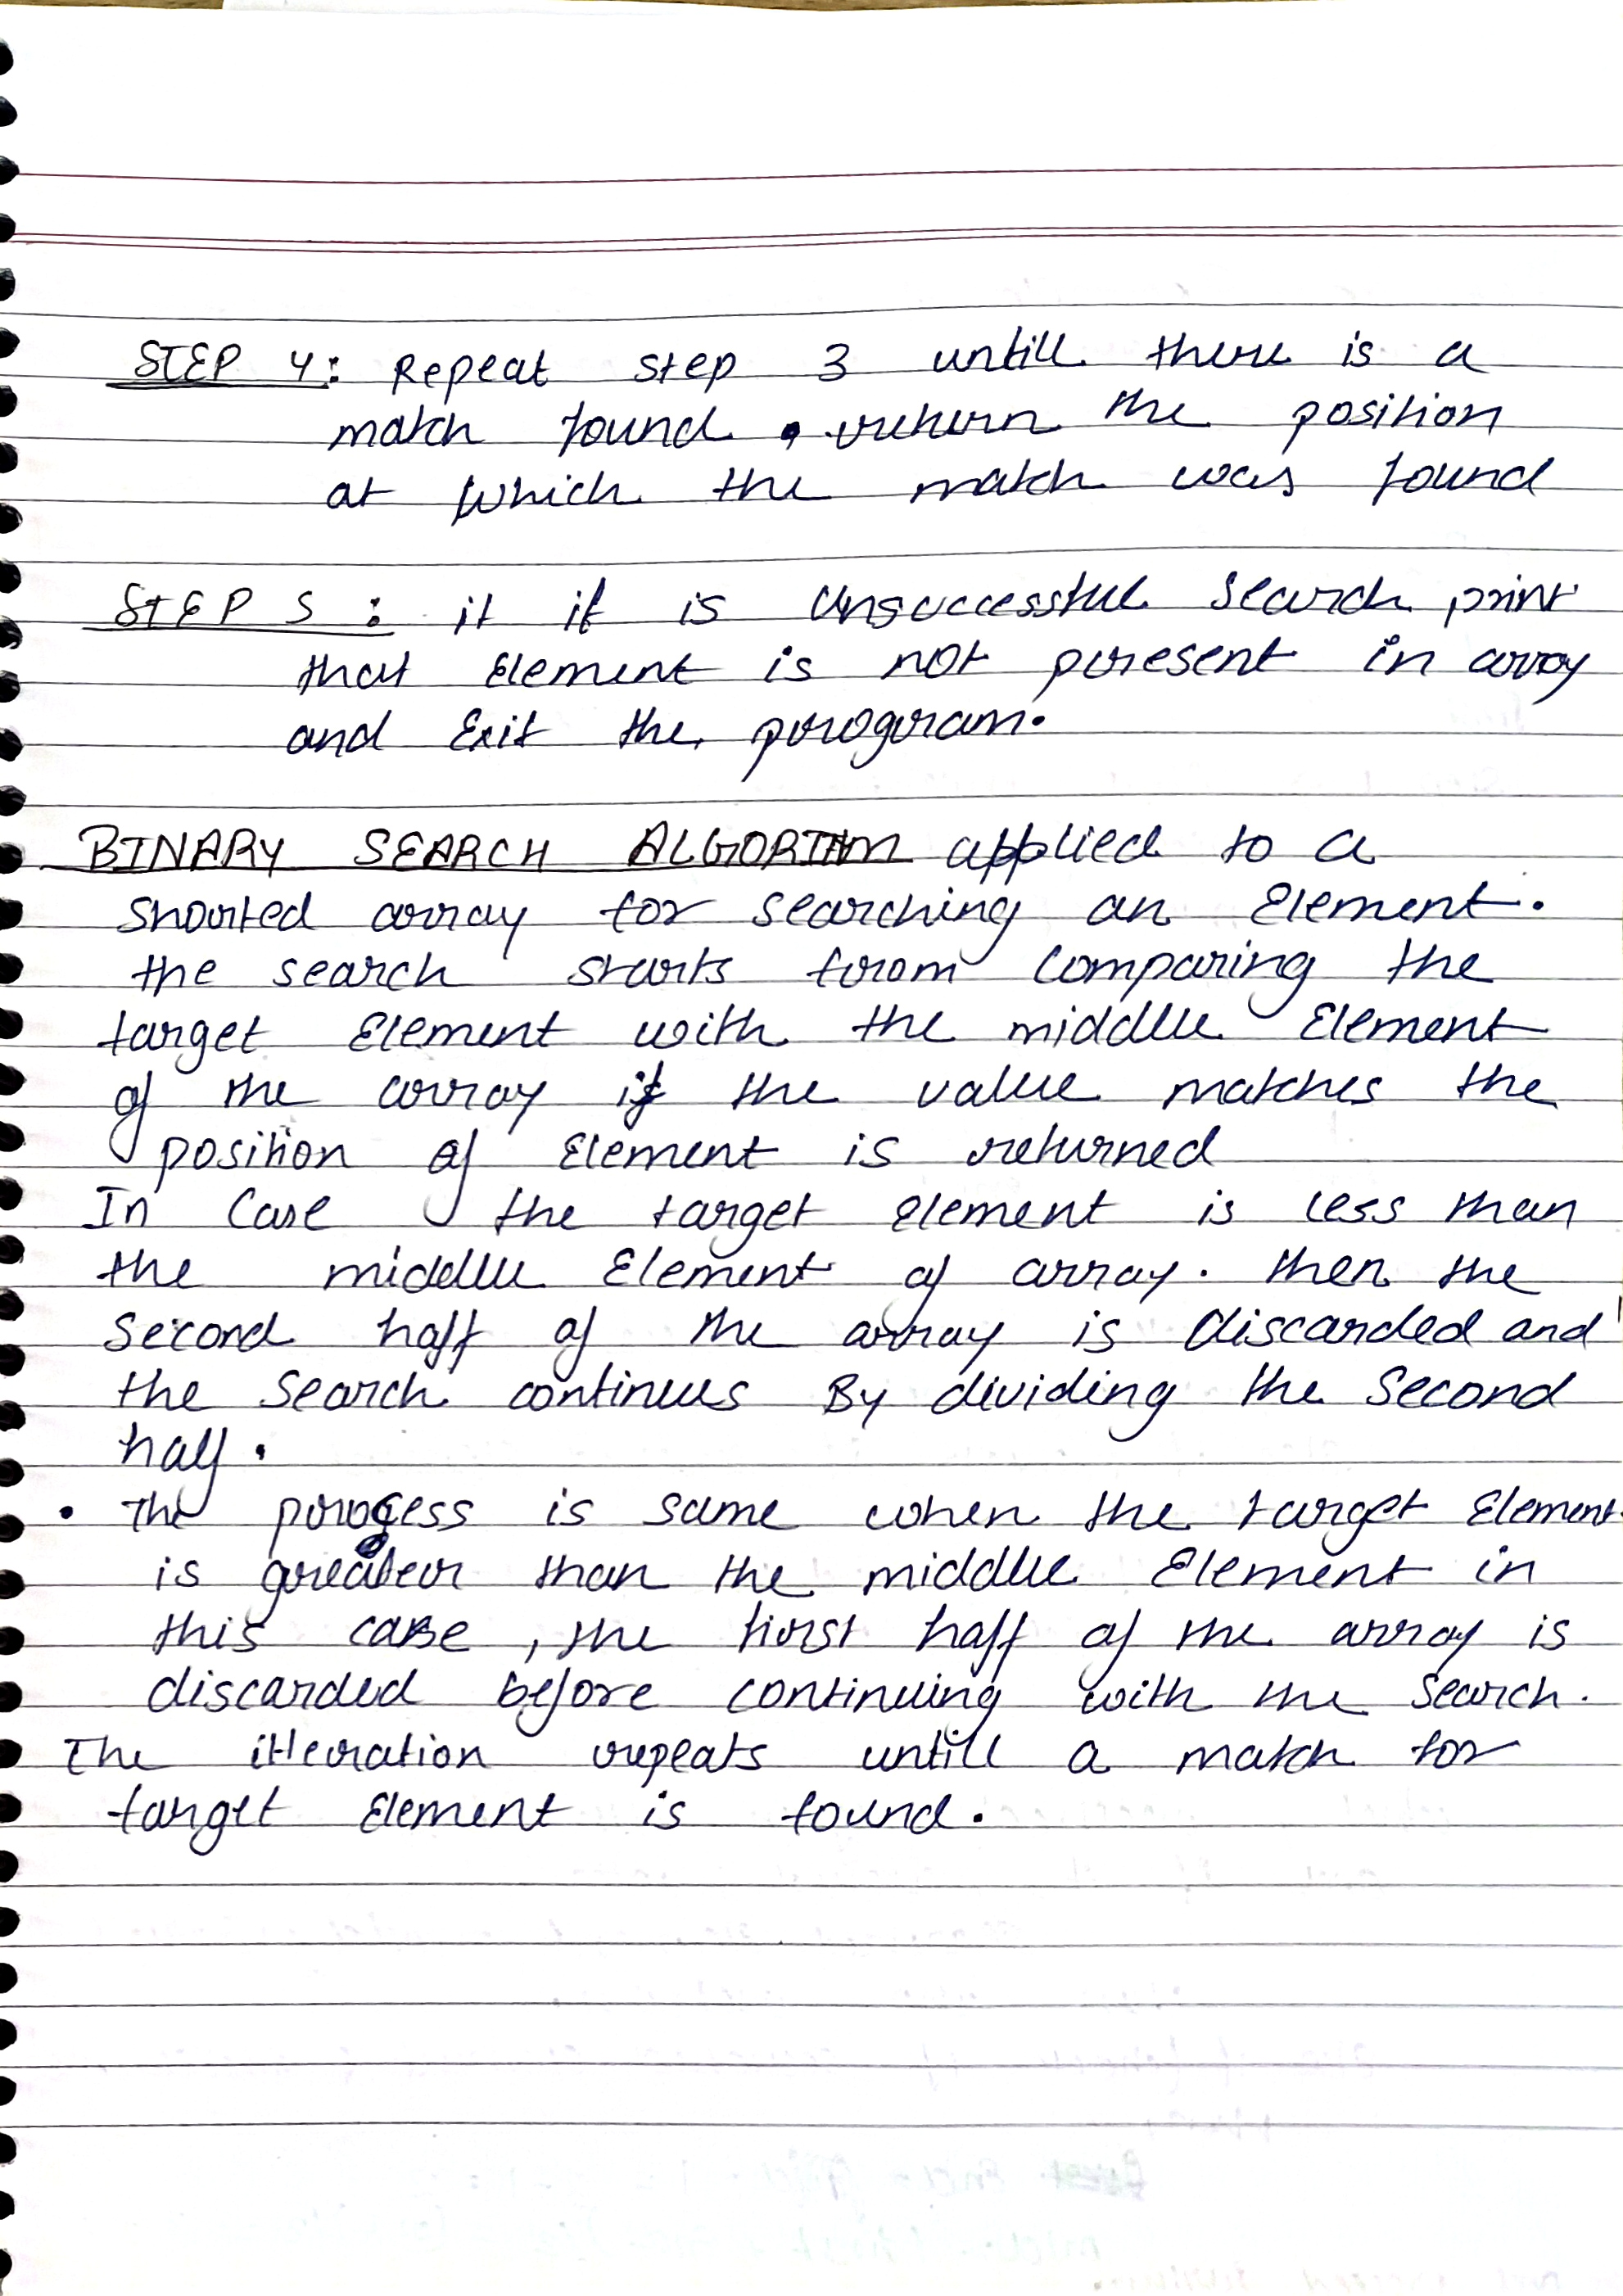 STEP 4: Repeat step 3 untill there is a
match found . return the position
at which the match was found
STEP 5 : if it is Unsuccessful Search print
that Element is not present in array
and Exit the program.
BINARY SEARCH ALGORITHM applied to a
Shorted array for searching an Element.
the search starts from comparing the
target Element with the middle Element
of the array if the value matches the
position of Element is returned
In Case the target element is less than
the middle Element of array. then the
Second half of the array is discarded and
the Search continues By dividing the Second
half.
• The process is same when the target Element
is greater than the middle Element in
this case , the first half of the array is
discarded before continuing with the Search.
The itteration repeats untill a match for
target Element is found.